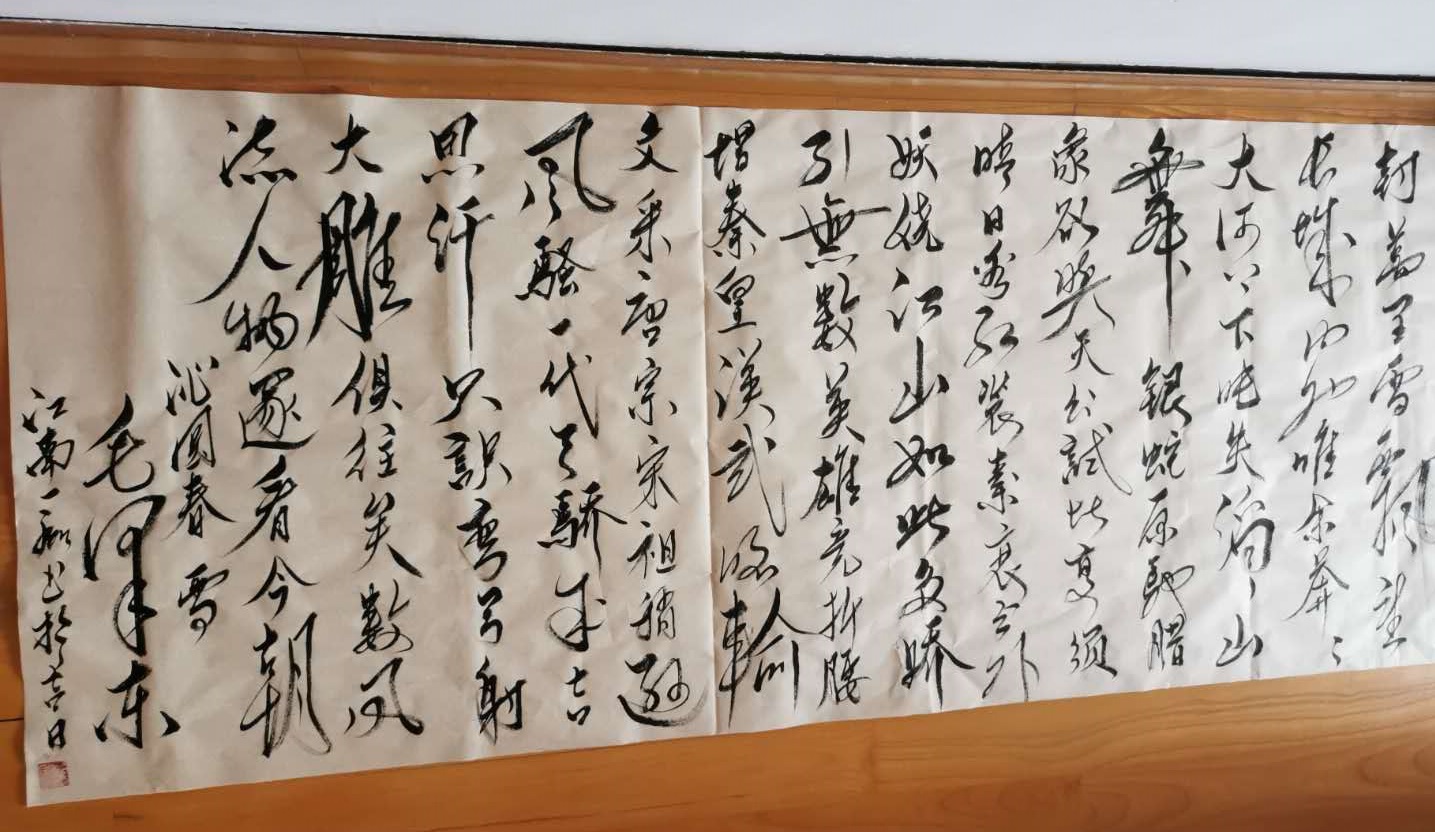 封萬里雪飄望
长城内外唯余莽々
大河上下吨失滔々山
舞銀蛇原驰腊
象欲与天公試比高须
晴日看红装素裹分外
妖娆江山如此多骄
引無數英雄竞折腰
惜秦皇漢武略輸
文采唐宗宋祖稍逊
风騷一代天骄成吉
思汗只識弯弓射
大雕俱往矣數风
流人物还看今朝
沁园春雪
毛泽东
江南一书於吉日